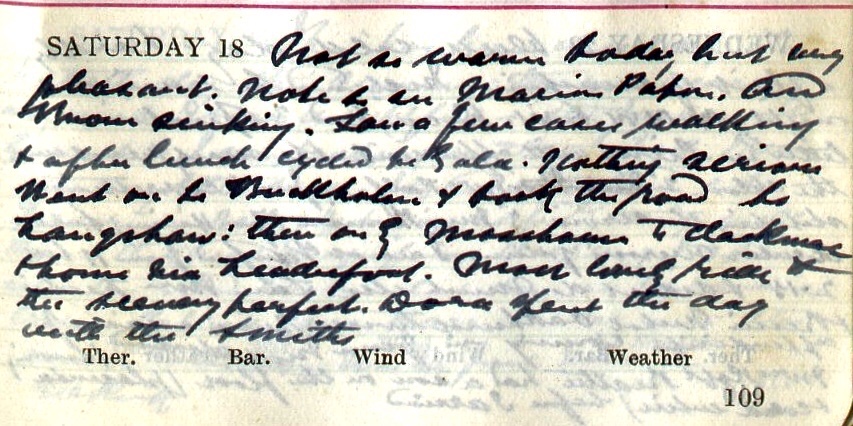 SATURDAY 18 Not so warm today but very
pleasant. Note in Papers. and
sinking. Saw a few cases walking
& after lunch cycled to Gala. Nothing serious
Went on to Buckholm & took the road to
Langshaw: then on by Mosshouses to
& home via Leaderfoot. Most lovely ride &
the scenery perfect. Dora spent the day
with the Smiths
Ther. Bar. Wind Weather
109